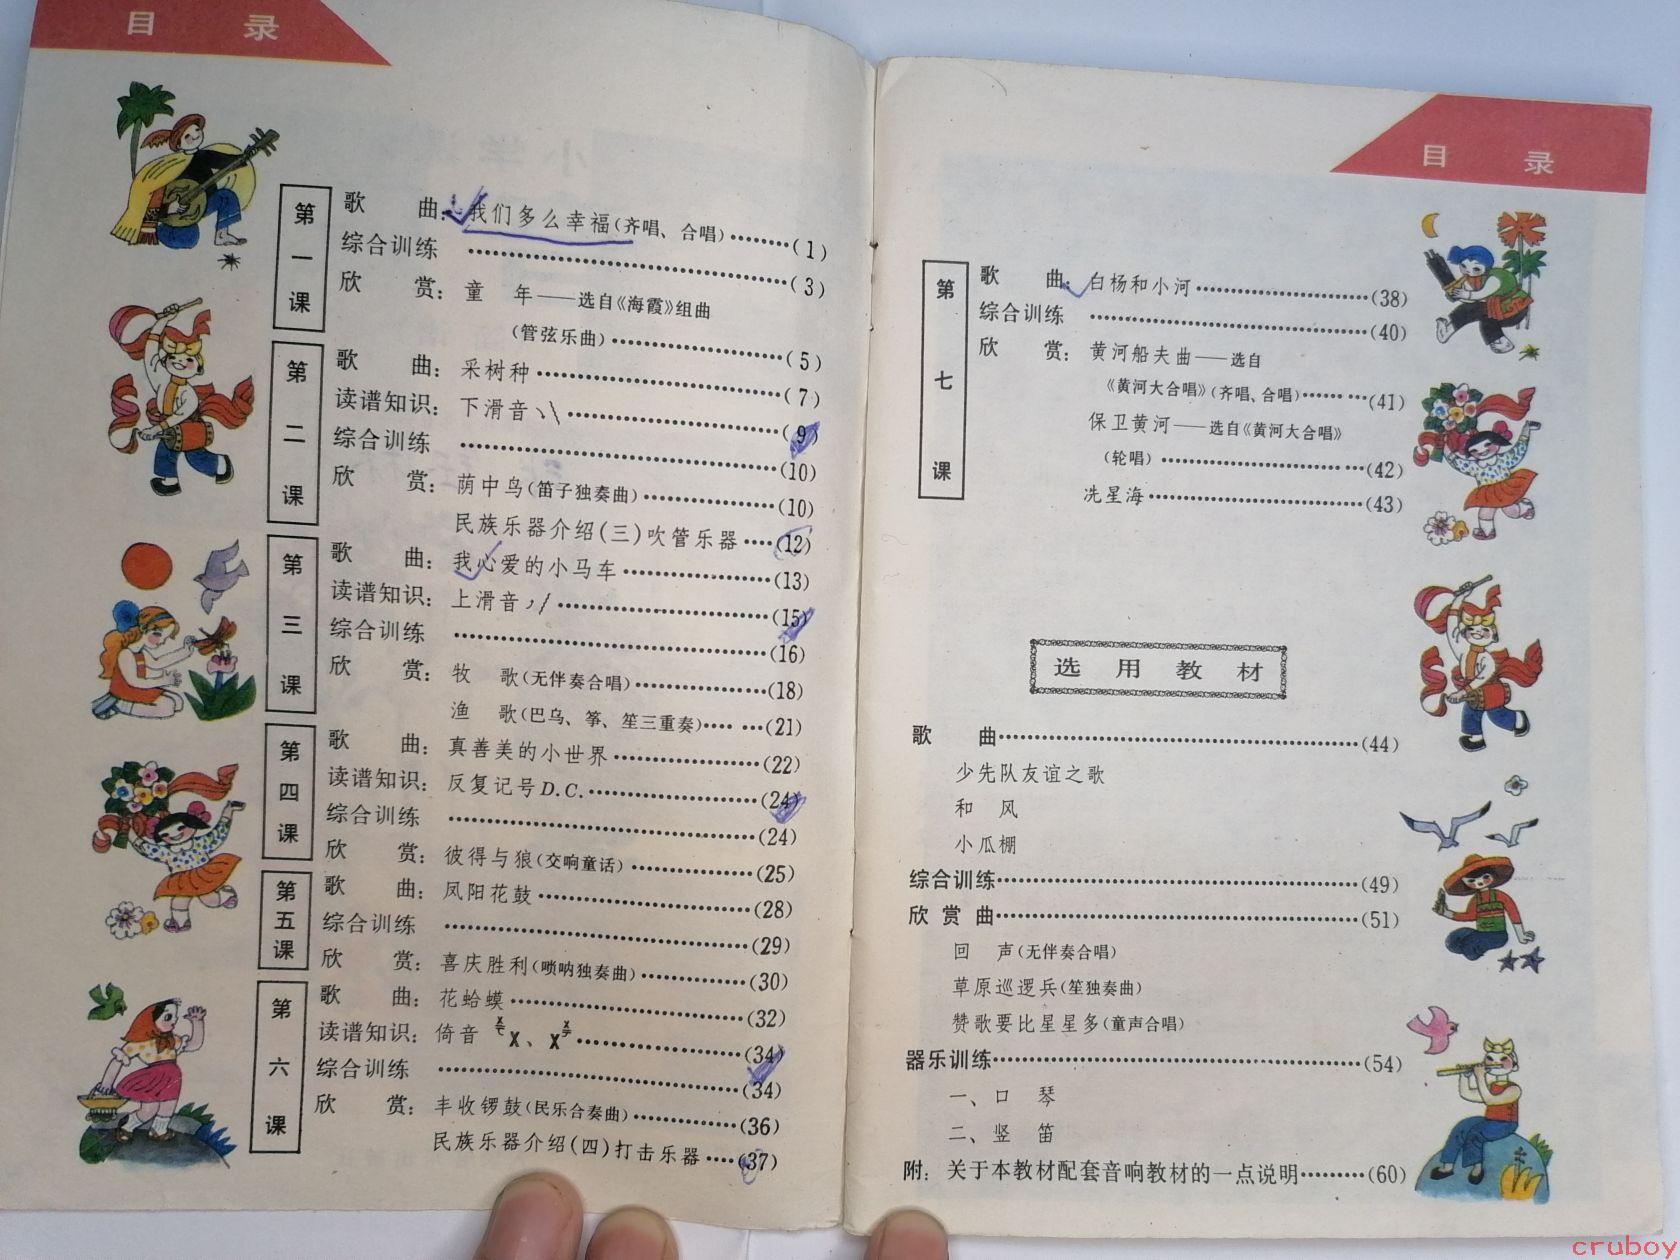 目 录
第一课
歌 曲：我们多么幸福(齐唱、合唱)………(1)
综合训练 ………(3)
欣 赏：童 年——选自《海霞》组曲
(管弦乐曲)………(5)
第二课
歌 曲：采树种………(7)
读谱知识：下滑音………(9)
综合训练 ………(10)
欣 赏：荫中鸟(笛子独奏曲)………(10)
民族乐器介绍(三)吹管乐器……(12)
第三课
歌 曲：我心爱的小马车………(13)
读谱知识：上滑音………(15)
综合训练 ………(16)
欣 赏：牧 歌(无伴奏合唱)………(18)
渔 歌(巴乌、筝、笙三重奏)………(21)
第四课
歌 曲：真善美的小世界………(22)
读谱知识：反复记号D.C.………(24)
综合训练 ………(24)
欣 赏：彼得与狼(交响童话)………(25)
第五课
歌 曲：凤阳花鼓………(28)
综合训练 ………(29)
欣 赏：喜庆胜利(唢呐独奏曲)………(30)
第六课
歌 曲：花蛤蟆………(32)
读谱知识：倚音 X、X………(34)
综合训练 ………(34)
欣 赏：丰收锣鼓(民乐合奏曲)………(36)
民族乐器介绍(四)打击乐器……(37)
目 录
第七课
歌 曲：白杨和小河………(38)
综合训练 ………(40)
欣 赏：黄河船夫曲——选自
《黄河大合唱》(齐唱、合唱)………(41)
保卫黄河——选自《黄河大合唱》
(轮唱)………(42)
冼星海………(43)
选用教材
歌 曲………(44)
少先队友谊之歌
和 风
小瓜棚
综合训练………(49)
欣 赏 曲………(51)
回 声(无伴奏合唱)
草原巡逻兵(笙独奏曲)
赞歌要比星星多(童声合唱)
器乐训练………(54)
一、口 琴
二、竖 笛
附：关于本教材配套音响教材的一点说明………(60)
cruboy